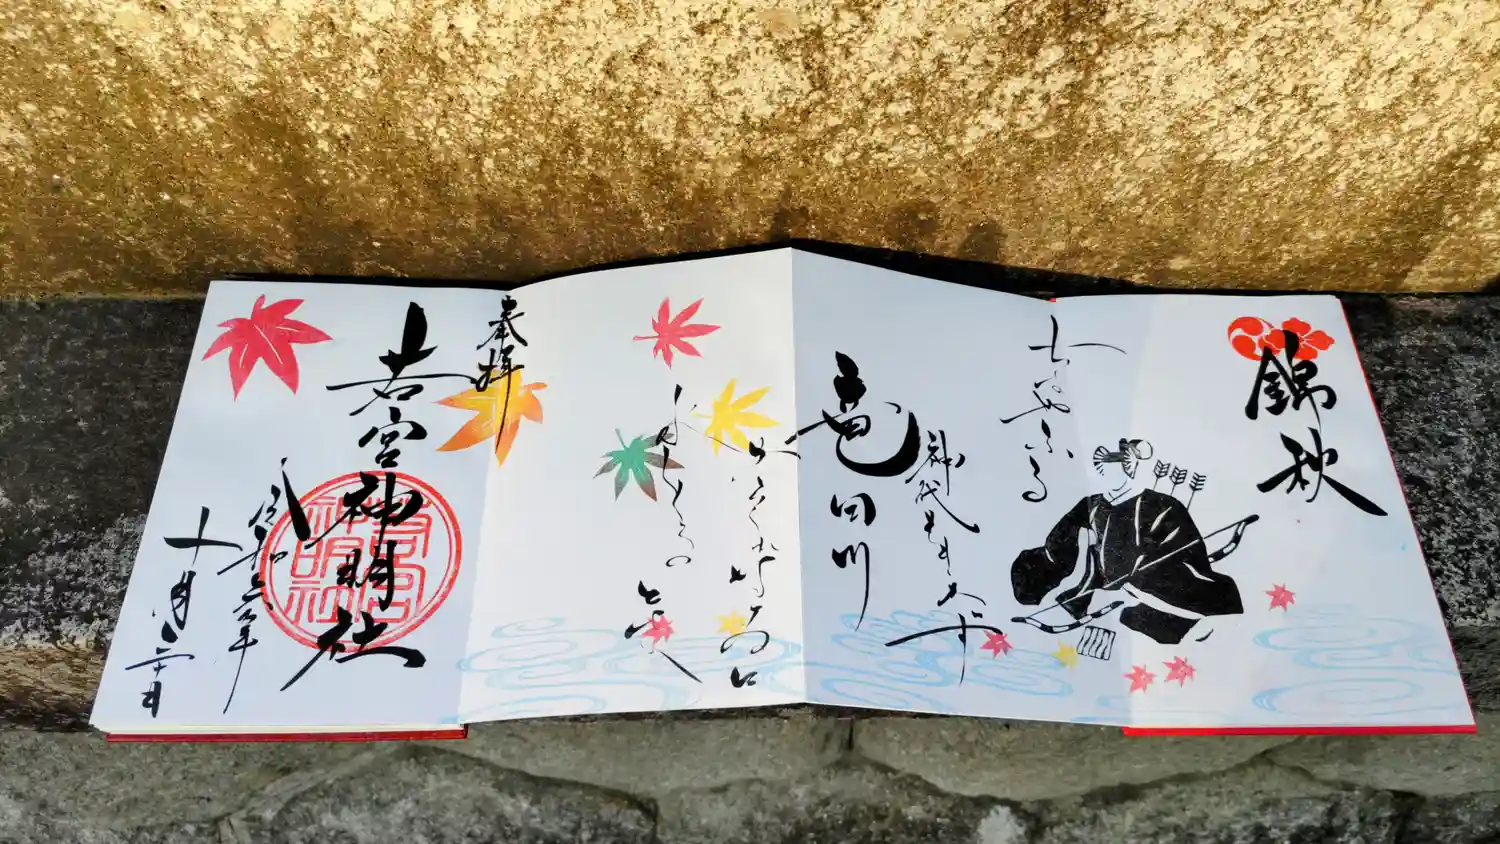 錦秋
ちはやふる
神代もきかす
竜田川
からくれなゐに
水くくるとは
奉拝
若宮神明社
若宮神明社
令和六年
十月二十日